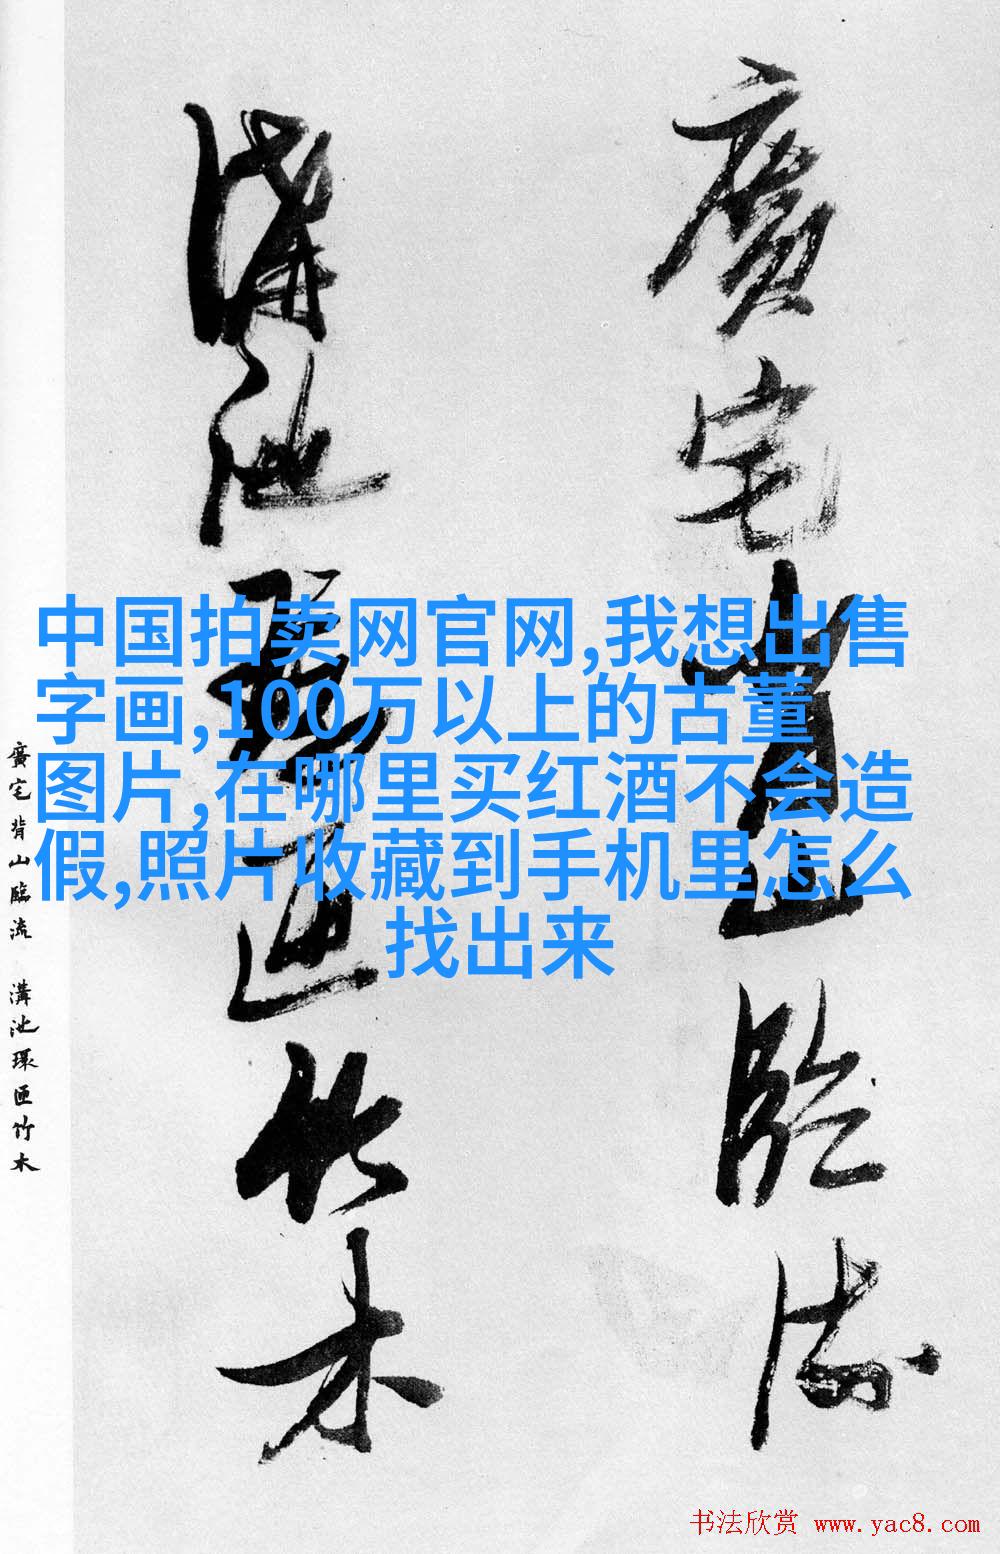 廣宅背山臨流
溝池環匝竹木
中国拍卖网官网,我想出售
字画,100万以上的古董
图片,在哪里买红酒不会造
假,照片收藏到手机里怎么
找出来
廣宅背山臨流 溝池環匝竹木
书法欣赏 www.yac8.com